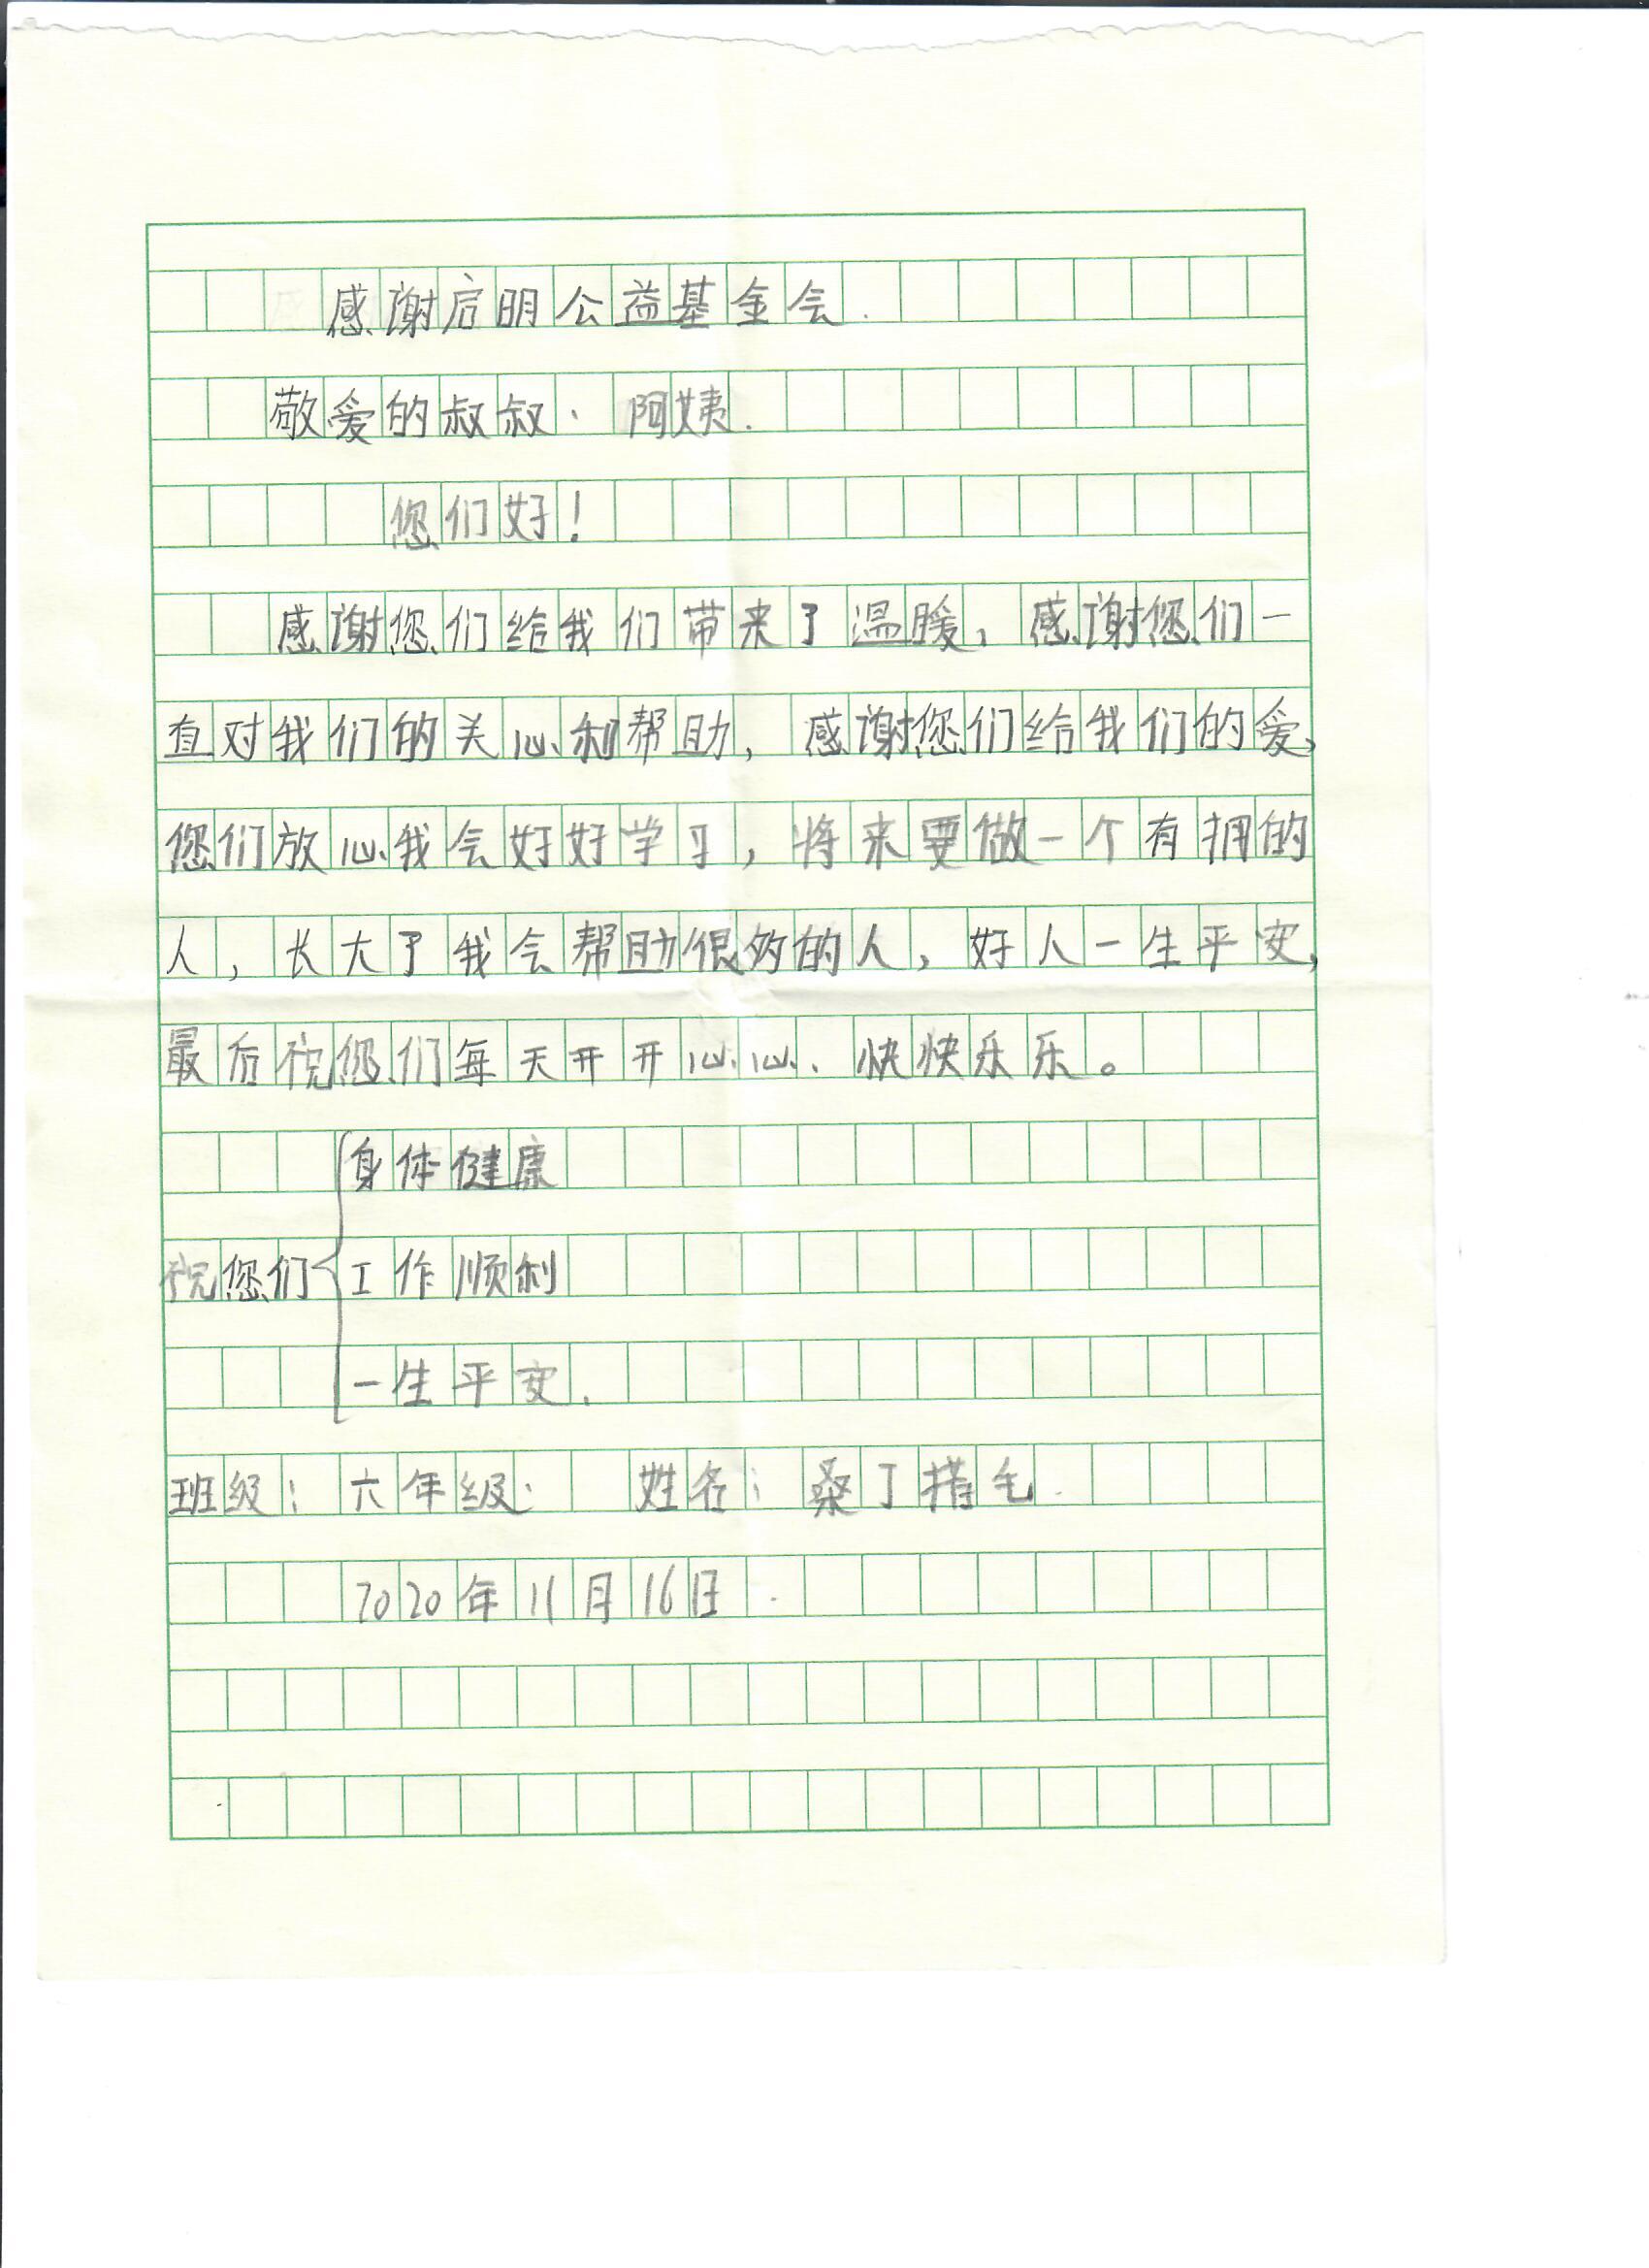 感谢启明公益基金会.
敬爱的叔叔、阿姨.
您们好!
感谢您们给我们带来了温暖,感谢您们一
直对我们的关心和帮助,感谢您们给我们的爱,
您们放心我会好好学习,将来要做一个有拥的
人,长大了我会帮助很多的人,好人一生平安,
最后祝您们每天开开心心、快快乐乐。
身体健康
祝您们 工作顺利
一生平安.
班级:六年级. 姓名:桑丁措毛.
2020年11月16日.